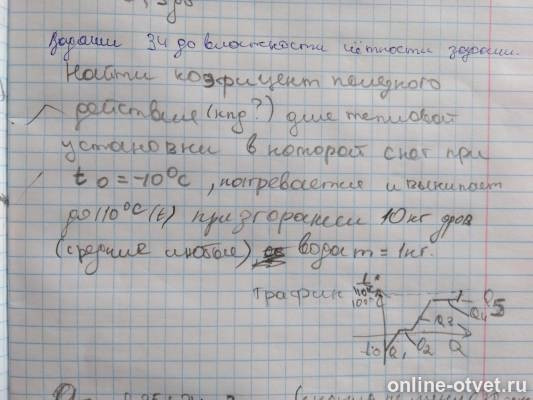 Задачи 34 до влажности чётности задачи.
Найти коэфицент полезного
действие (кпд?) для тепловой
установки в которой снег при
t0 = -10°C, нагревается и выкипает
до 110°C (t) при згорании 10 кг дров
(средние любые), вода m = 1 кг.
График
110°C
100°C
Q5
Q4
Q3
t0 Q1 Q2 Q
online-otvet.ru